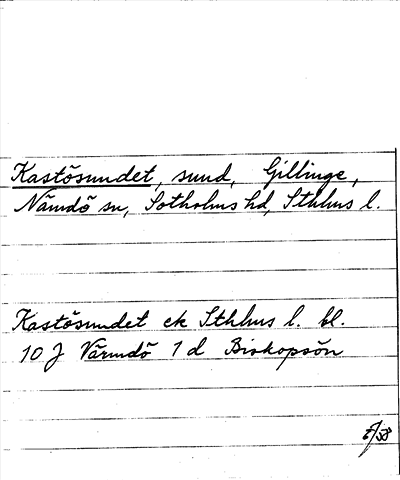 Kastösundet, sund, Gillinge,
Nämdö sn, Sotholms hd, Sthlms l.
Kastösundet ek Sthlms l. bl.
10 J Värmdö 1 d Biskopsön
/58